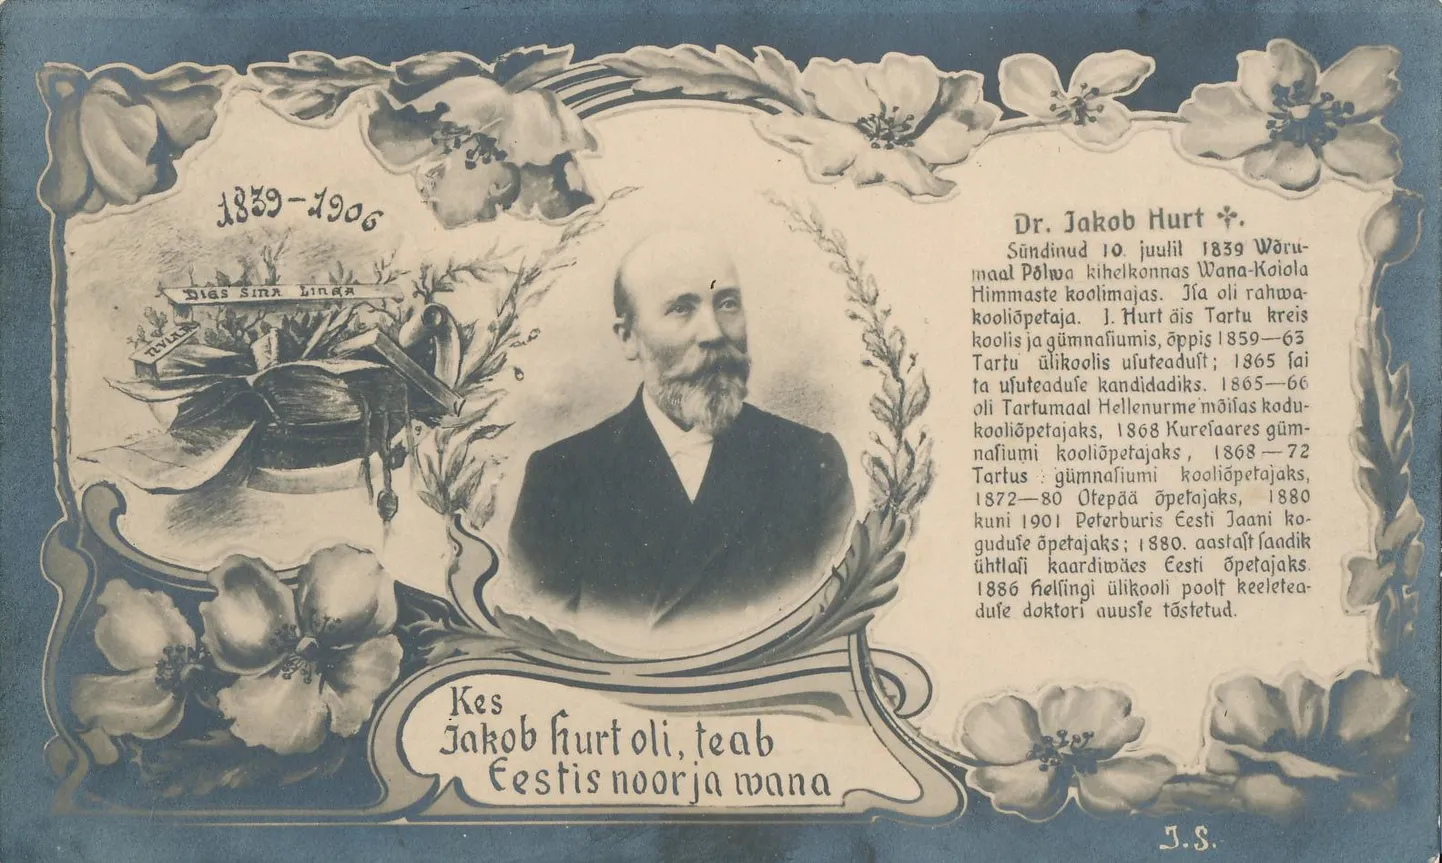 1839-1906
DIES SINA LINDA
Dr. Jakob Hurt ✣.
Sündinud 10. juulil 1839 Wõru-
maal Põlwa kihelkonnas Wana-Koiola
Himmaste koolimajas. Iſa oli rahwa-
kooliõpetaja. J. Hurt äis Tartu kreis
koolis ja gümnaſiumis, õppis 1859—63
Tartu ülikoolis uſuteaduſt; 1865 ſai
ta uſuteaduſe kandidadiks. 1865—66
oli Tartumaal Hellenurme mõiſas kodu-
kooliõpetajaks, 1868 Kureſaares güm-
naſiumi kooliõpetajaks, 1868—72
Tartus gümnaſiumi kooliõpetajaks,
1872—80 Otepää õpetajaks, 1880
kuni 1901 Peterburis Eesti Jaani ko-
guduſe õpetajaks; 1880. aastaſt ſaadik
ühtlaſi kaardiwäes Eesti õpetajaks.
1886 Helſingi ülikooli poolt keeletea-
duſe doktori auuſſe tõstetud.
Kes
Jakob Hurt oli, teab
Eestis noor ja wana
J.S.